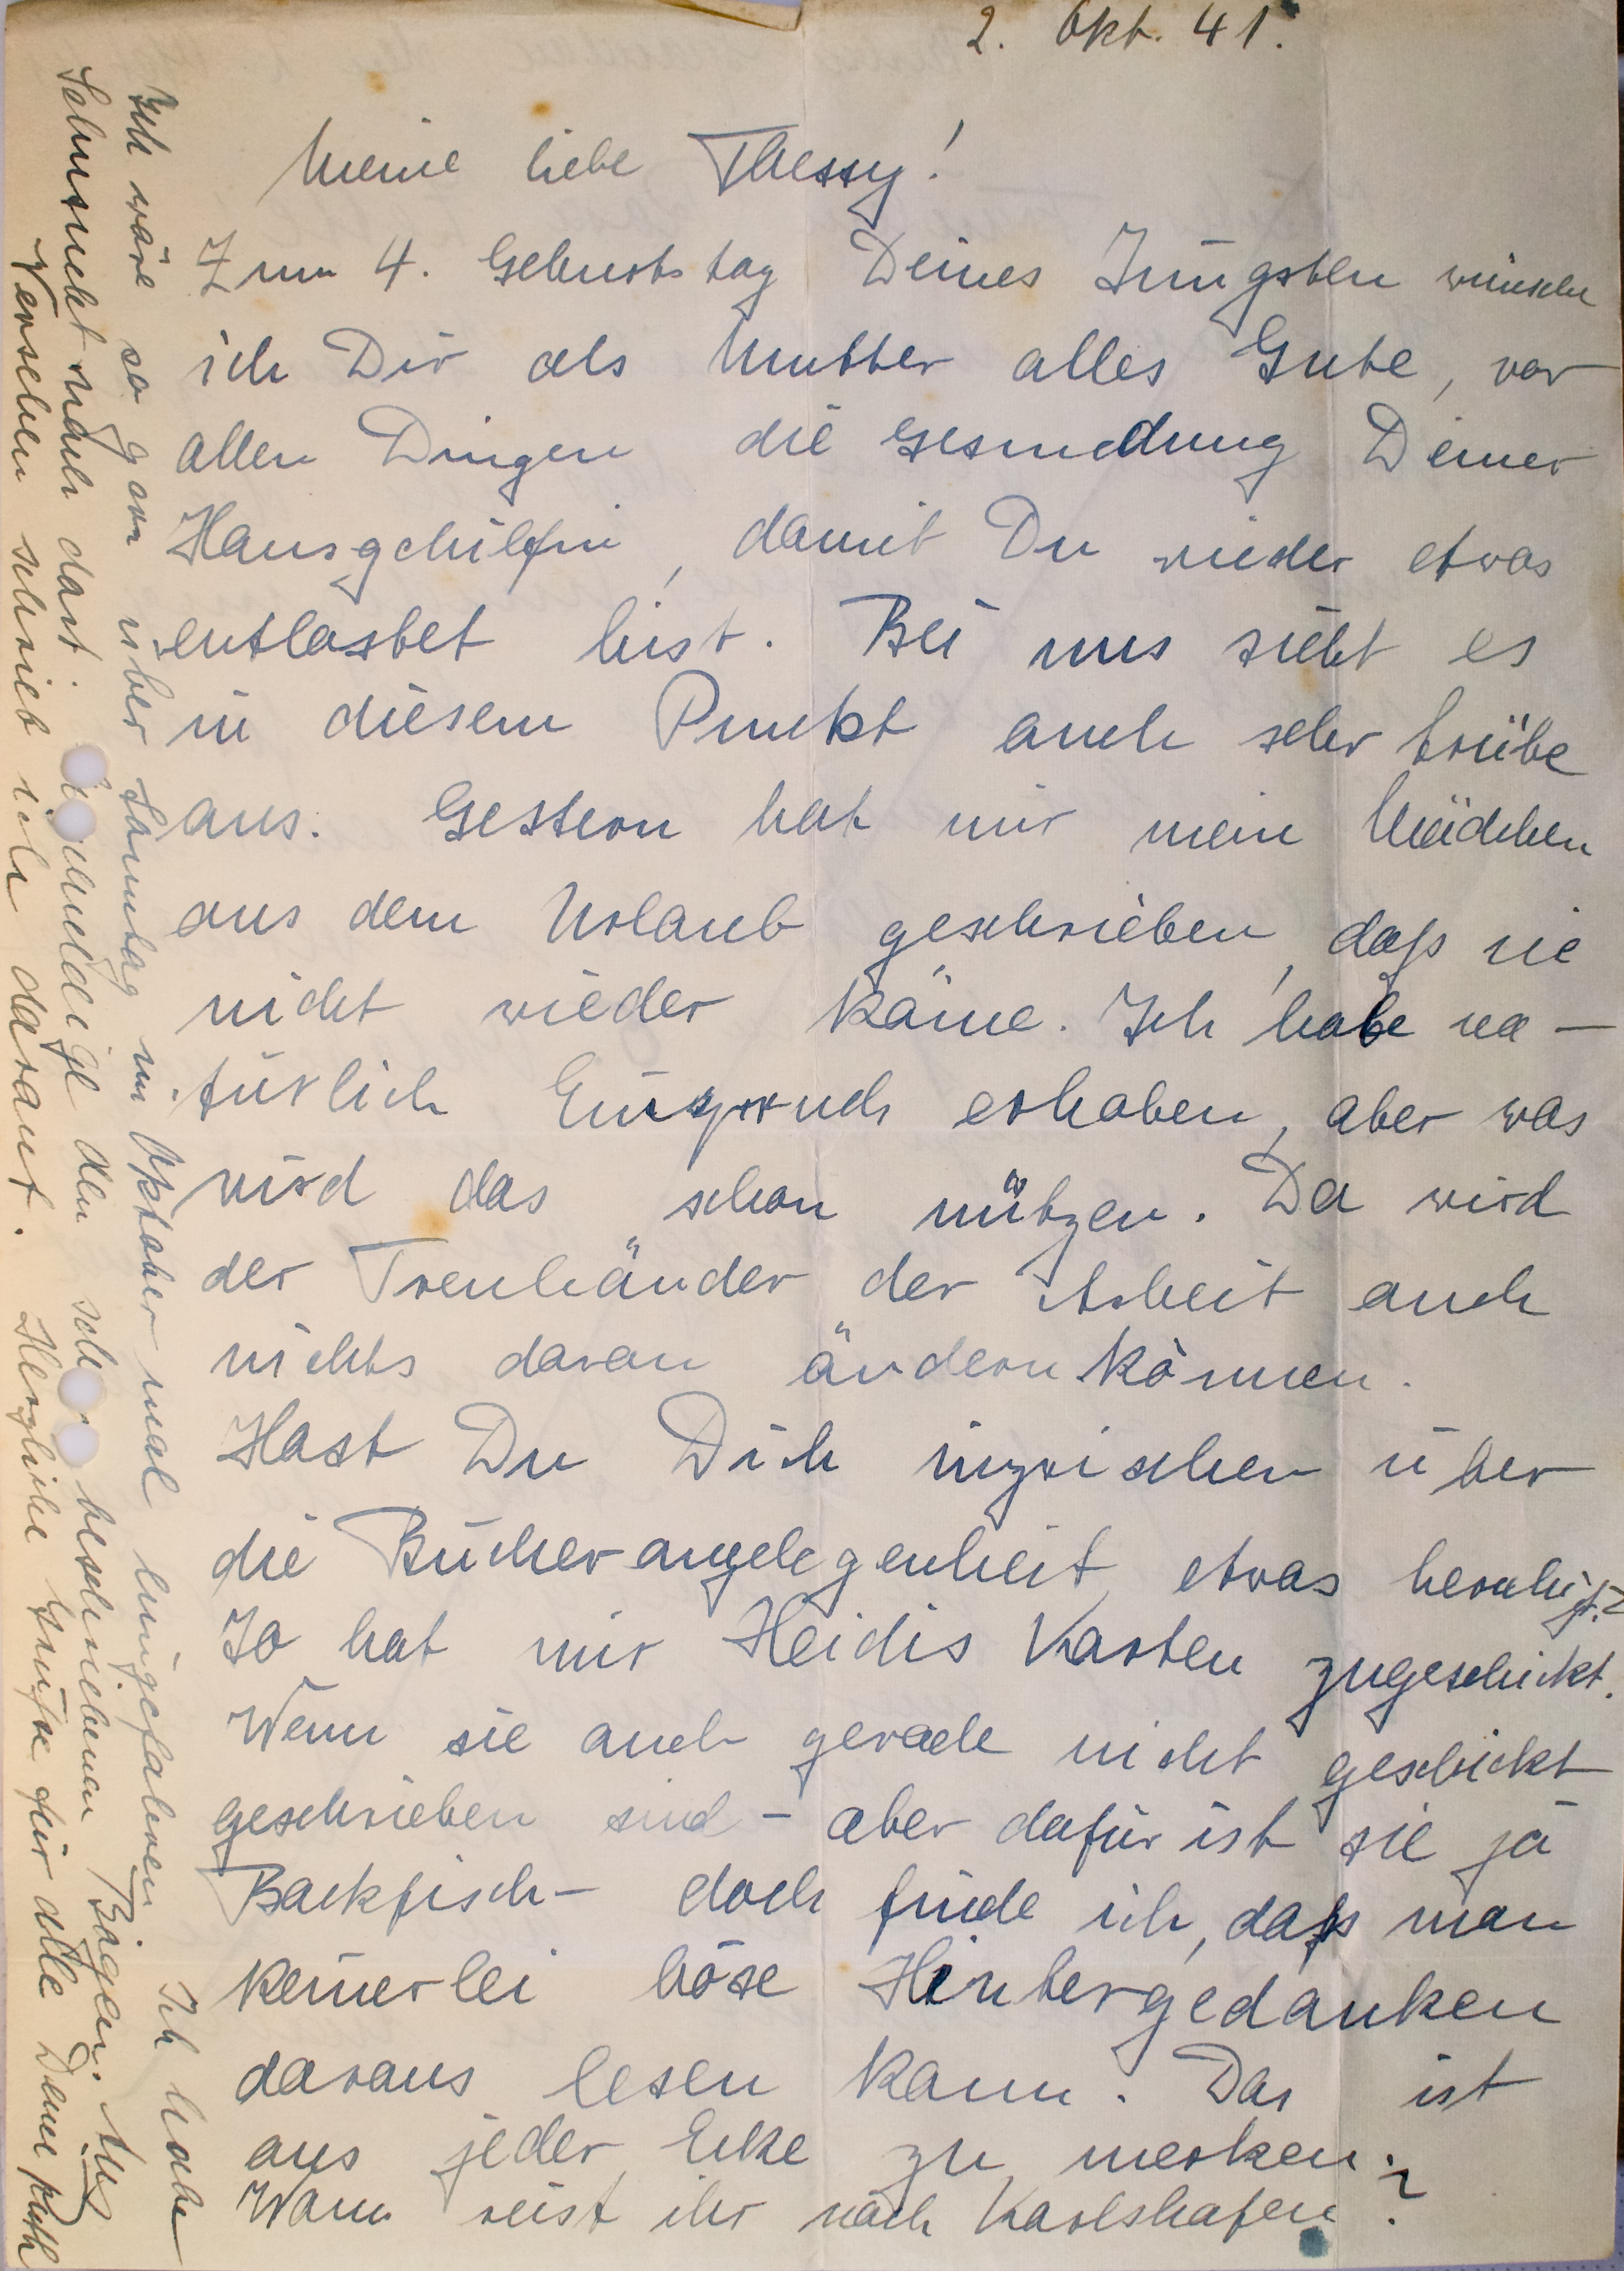 2. Okt. 41.
Meine liebe Thessy!
Zum 4. Geburtstag Deines Jüngsten wünsche
ich Dir als Mutter alles Gute, vor
allen Dingen die Gesundung Deiner
Hausgehilfin, damit Du wieder etwas
entlastet bist. Bei uns sieht es
in diesem Punkt auch sehr trübe
aus. Gestern hat mir mein Mädchen
aus dem Urlaub geschrieben, daß sie
nicht wieder käme. Ich habe na-
türlich Einspruch erhoben, aber was
wird das schon nützen. Da wird
der Treuhänder der Arbeit auch
nichts daran ändern können.
Hast Du Dich inzwischen über
die Bücherangelegenheit etwas beruhigt?
Jo hat mir Heidis Karten zugeschickt.
Wenn sie auch gerade nicht geschickt
geschrieben sind - aber dafür ist sie ja
Backfisch - doch finde ich, daß man
keinerlei böse Hintergedanken
daraus lesen kann. Das ist
aus jeder Ecke zu merken.
Wann reist ihr nach Karlshafen?
Ich wäre so gern über Sonntag im Oktober mal hingefahren. Ich habe
Sehnsucht nach dort. Entschuldige den schon beschriebenen Bogen. Aus
Versehen schrieb ich darauf. Herzliche Grüße für alle Deine Ruth